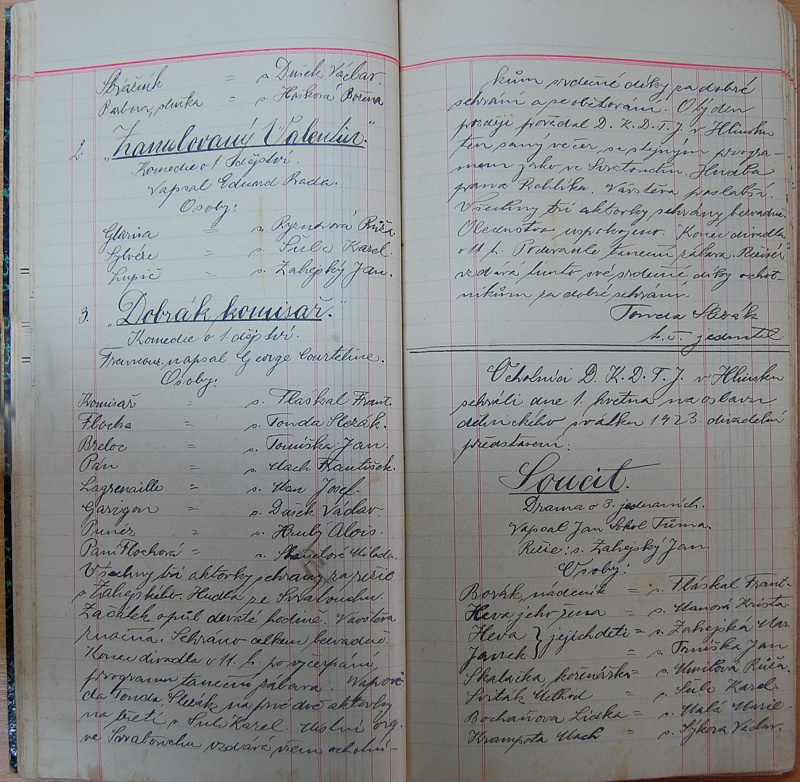 Strážník = s. Dušek Václav.
Barbora, služka = s. Hošková Božena
2. "Zamilovaný Valentin."
Komedie o 1 dějství.
Napsal Eduard Rada.
Osoby:
Glarisa = s. Růža.
Silvére = s. Šulc Karel.
Lupič = s. Zahejský Jan.
3. "Dobrák komisař."
Komedie o 1. dějství.
Francouz. napsal George Courteline.
Osoby:
Komisař = s. Flaškal Frant.
Floche = s. Tonda Slezák.
Breloc = s. Tomiška Jan.
Pán = s. Mach František.
Lagrenaille = s. Man Josef.
Garigon = s. Dušek Václav
Punéz = s. Hrubý Alois.
Paní Flochová = s. Milada.
Všechny tři aktovky sehrány za režie
s. Zahejského. Hudba ze Svratouchu.
Začátek o půl deváté hodině. Návštěva
značná. Sehráno celkem bezvadně.
Konec divadla o 11 h. po vyčerpání
programu taneční zábava. Nápově-
da Tonda Slezák na prvé dvě aktovky
na třetí s. Šulc Karel. Místní org.
ve Svratouchu vzdává všem ochotní-
kům srdečné díky za dobré
sehrání a se obětování. O týden
později pořádal D. K. D. T. J. v Hlinsku
ten samý večer, se stejným progra-
mem jako ve Svratouchu. Hudba
pana Kohlíka. Návštěva poslabší.
Všechny tři aktovky sehrány bezvadně.
Obecenstvo uspokojeno. Konec divadla
o 11 h. Po divadle taneční zábava. Režisér
vzdává tímto své srdečné díky ochot-
níkům za dobré sehrání.
Tonda Slezák
t. č. jednatel.
Ochotníci D. K. D. T. J. v Hlinsku
sehráli dne 1. května na oslavu
dělnického svátku 1923 divadelní
představení:
Soucit.
Drama o 3. jednáních.
Napsal Jan Sokol Tůma.
Režie: s. Zahejský Jan.
Osoby:
Borák, nádeník = s. Flaškal Frant.
Heva jeho žena = s. Manová Krista
Heva } jejich děti = s. Zahejská Mar.
Janek } = s. Tomiška Jan
Skalačka kořenářka = s. Růža.
Sviták = s. Šulc Karel.
Bochaňova Lidka = s. Malá Marie.
Krampota Mach = s. Sýkora Václav.